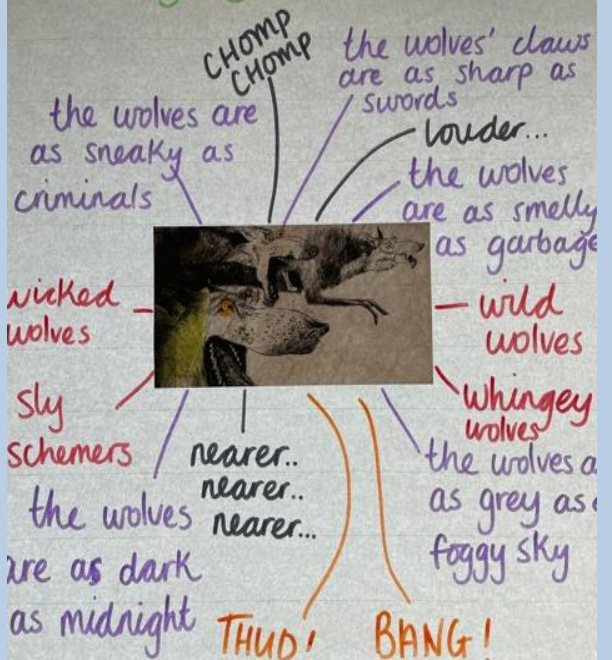 CHOMP
CHOMP
the wolves' claws
are as sharp as
swords
the wolves are
as sneaky as
criminals
louder...
the wolves
are as smelly
as garbage
wicked
wolves
wild
wolves
sly
schemers
whingey
wolves
nearer..
nearer..
nearer...
the wolves a
as grey as
foggy sky
the wolves
are as dark
as midnight
THUD!
BANG!